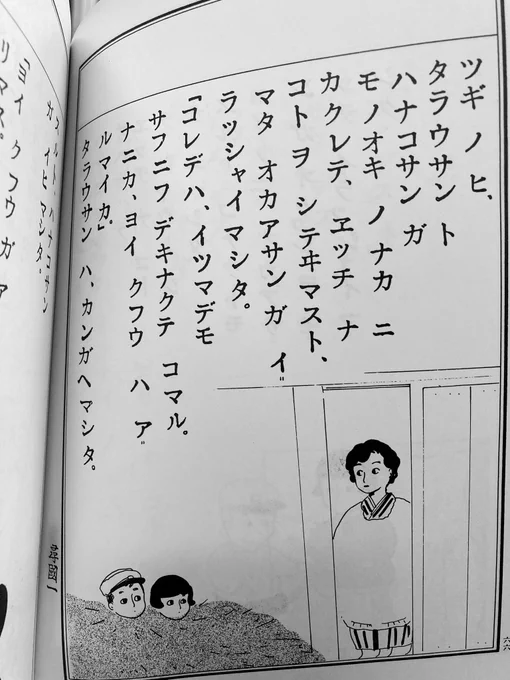 ツギ ノ ヒ、
タラウサン ト
ハナコサン ガ
モノオキ ノ ナカ ニ
カクレテ、ヱッチ ナ
コトヲ シテヰマスト、
マタ オカアサン ガ イ
ラッシャイマシタ。
「コレデハ、イツマデモ
サフニフ デキナクテ コマル。
ナニカ、ヨイ クフウ ハ ア
ルマイカ。」
タラウサン ハ、カンガヘマシタ。
尋國一
六六
スルト ハナコサン
ガ イヒマシタ。
「ヨイ クフウ ガ ア
リマス。